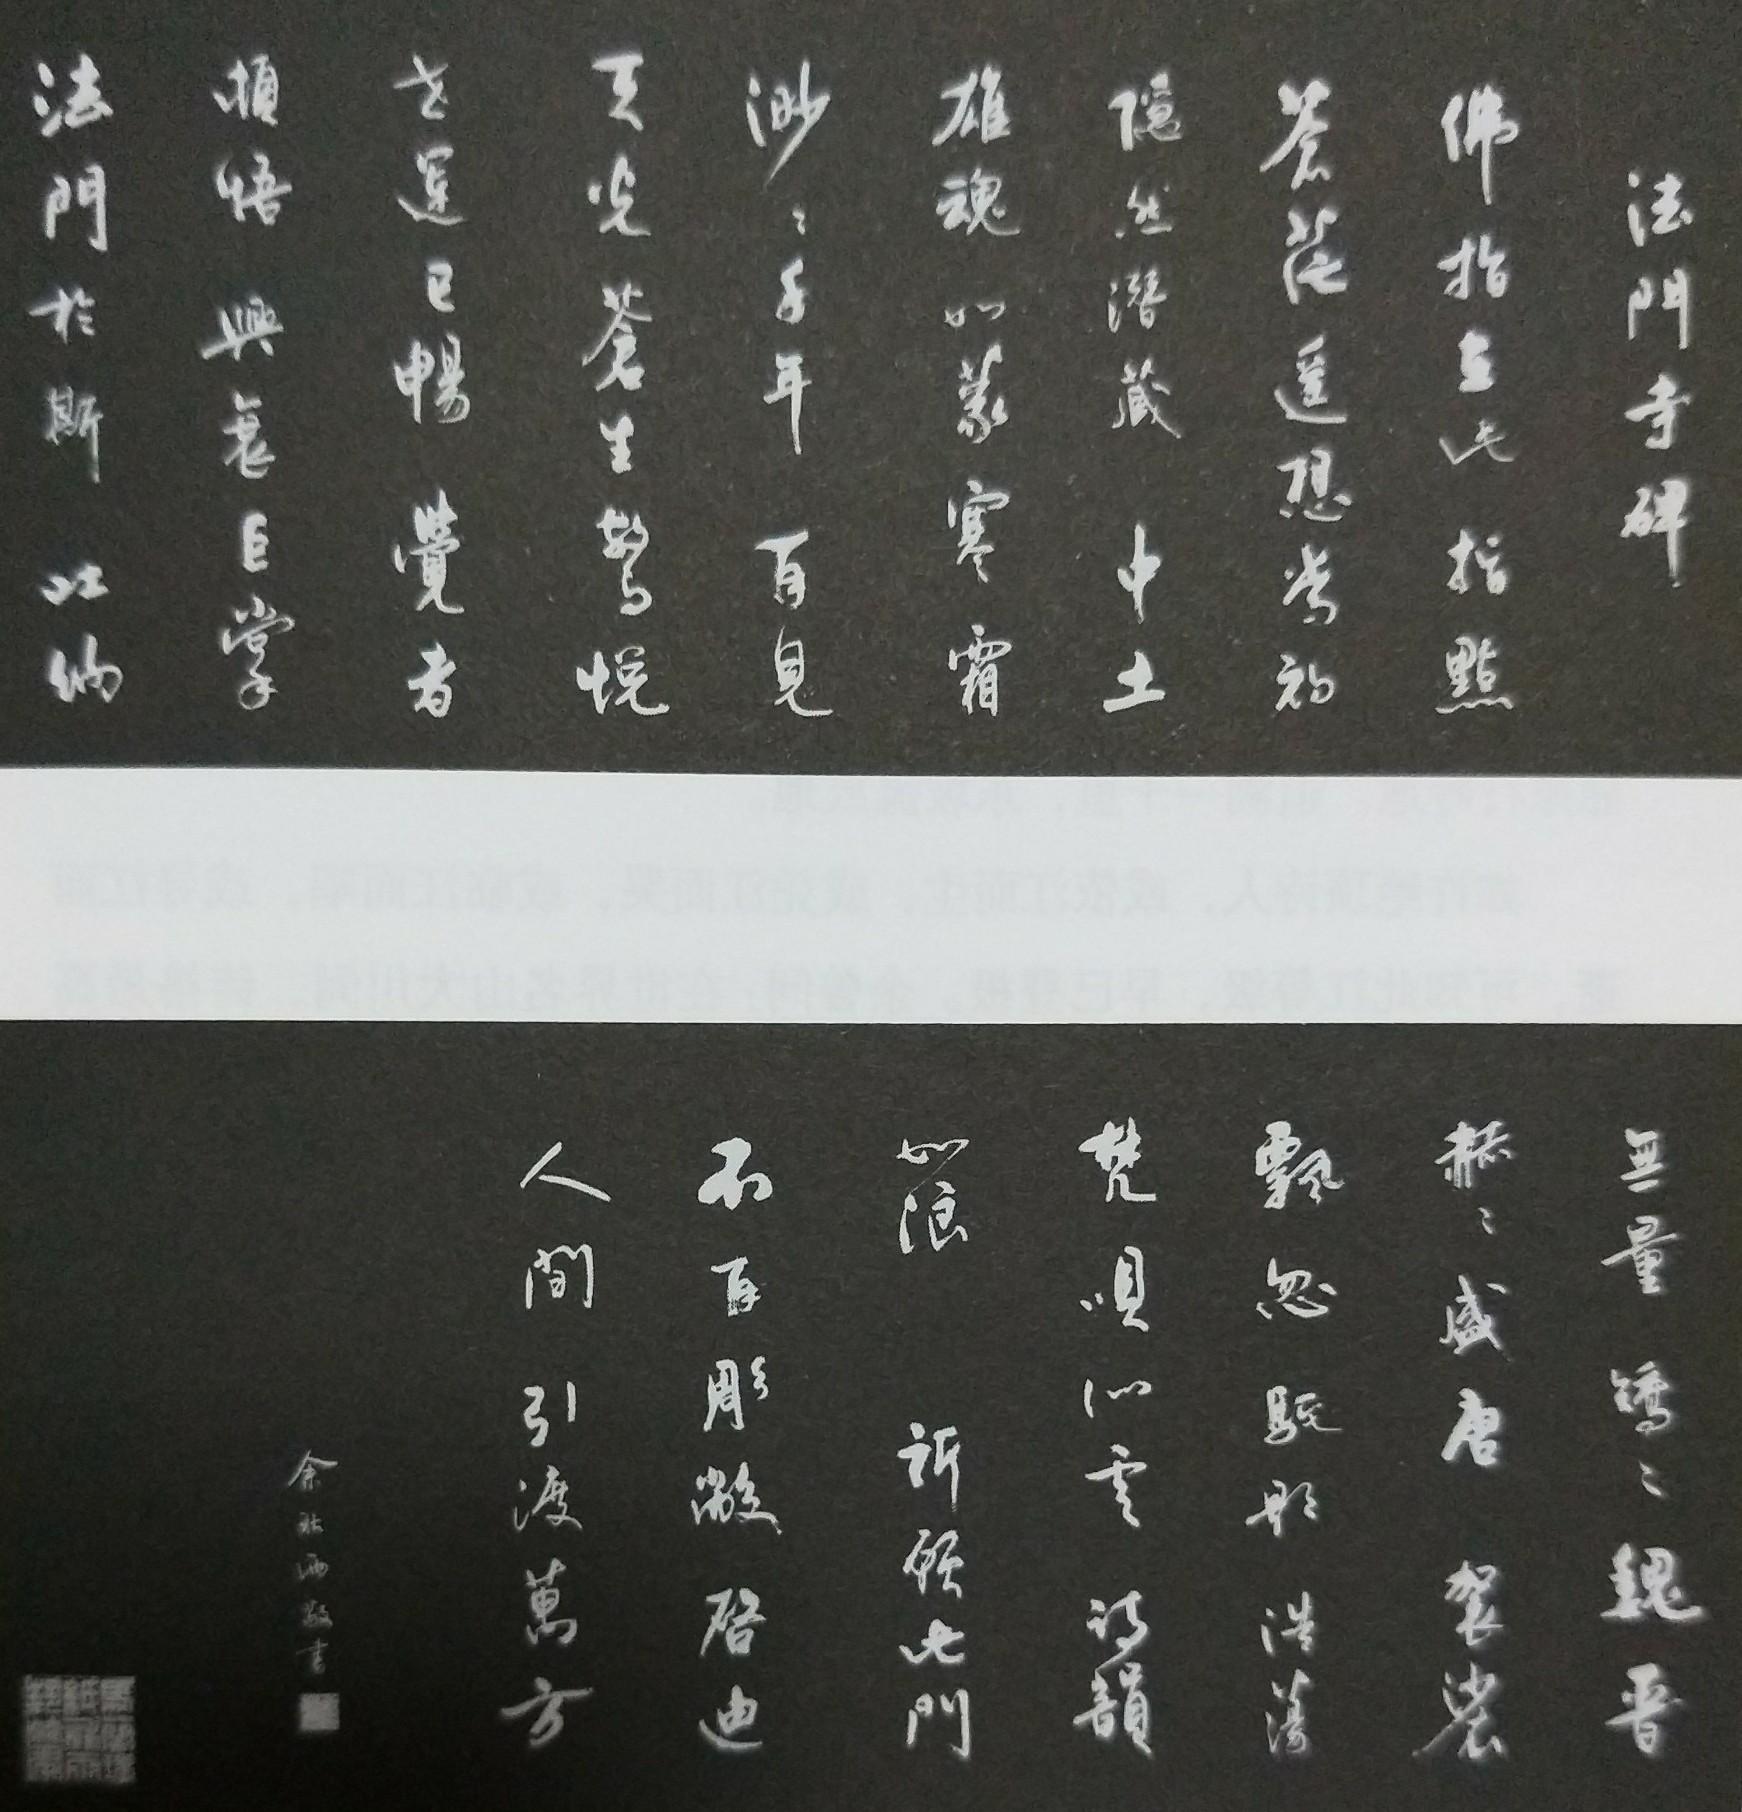 法門寺碑
佛指在此 指點
蒼茫 遥想當初
隱然潛藏 中土
雄魂 如蒙寒霜
渺々千年 再見
天光 蒼生驚悦
世運已暢 覺者
頓悟 興衰巨掌
法門於斯 吐納
無量 矯々魏晉
赫々盛唐 袈裟
飄忽 駝形浩蕩
梵唄如雲 詩韻
如浪 祈願此門
不再彫敝 啓迪
人間 引渡萬方
余秋雨敬書